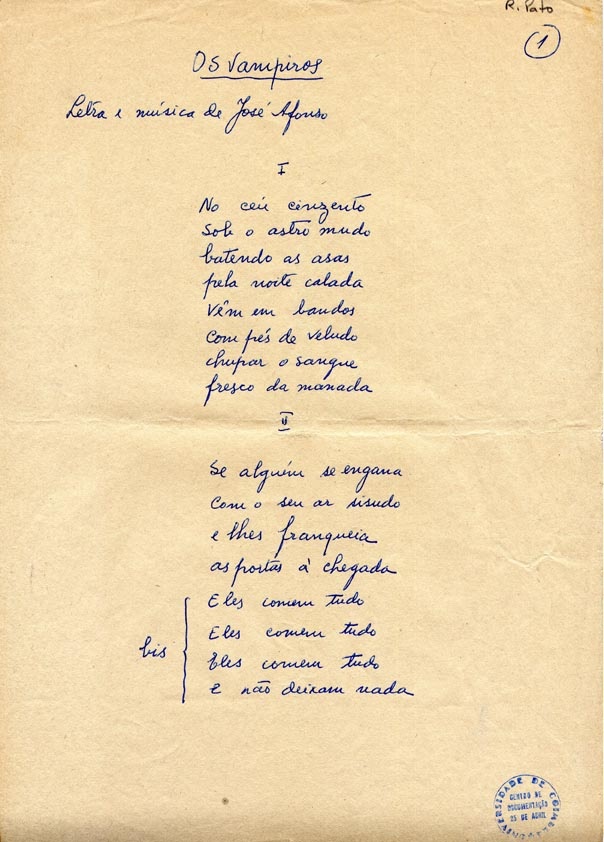 R. Pato
1
Os Vampiros
Letra e música de José Afonso
I
No ceu cinzento
Sob o astro mudo
batendo as asas
pela noite calada
Vêm em bandos
Com pés de veludo
chupar o sangue
fresco da manada
II
Se alguém se engana
Com o seu ar sisudo
e lhes franqueia
as portas à chegada
Eles comem tudo
Eles comem tudo
bis
Eles comem tudo
E não deixam nada
UNIVERSIDADE DE COIMBRA
CENTRO DE
DOCUMENTAÇÃO
25 DE ABRIL